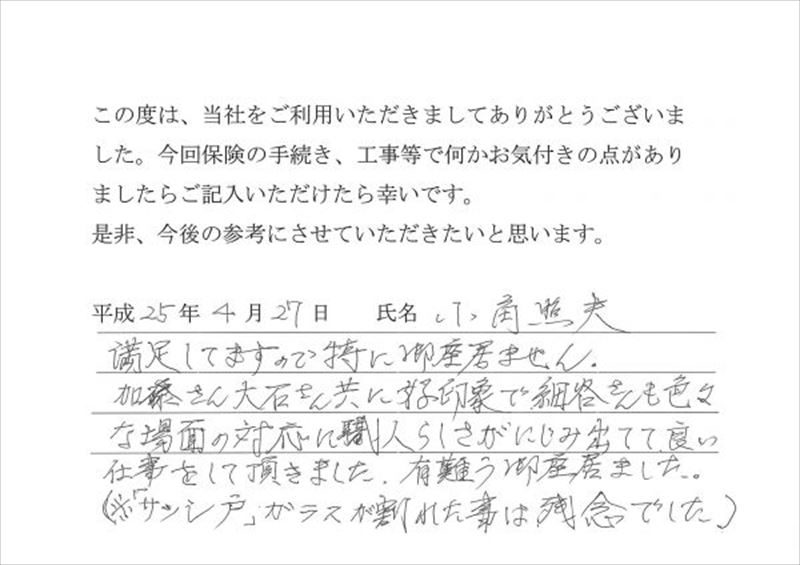 この度は、当社をご利用いただきましてありがとうございま
した。今回保険の手続き、工事等で何かお気付きの点があり
ましたらご記入いただけたら幸いです。
是非、今後の参考にさせていただきたいと思います。
平成25年4月27日 氏名 小角照夫
満足してますので特に御座居ません.
加藤さん大石さん共に好印象で細谷さんも色々
な場面の対応に職人らしさがにじみ出てて良い
仕事をして頂きました.有難う御座居ました。
(※「サッシ戸」ガラスが割れた事は残念でした)